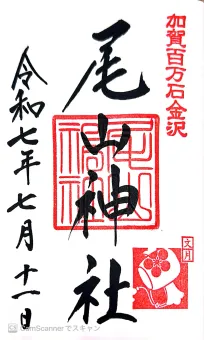 加賀百万石金沢
尾山神社
尾山神社
文月
令和七年七月十一日
CamScannerでスキャン